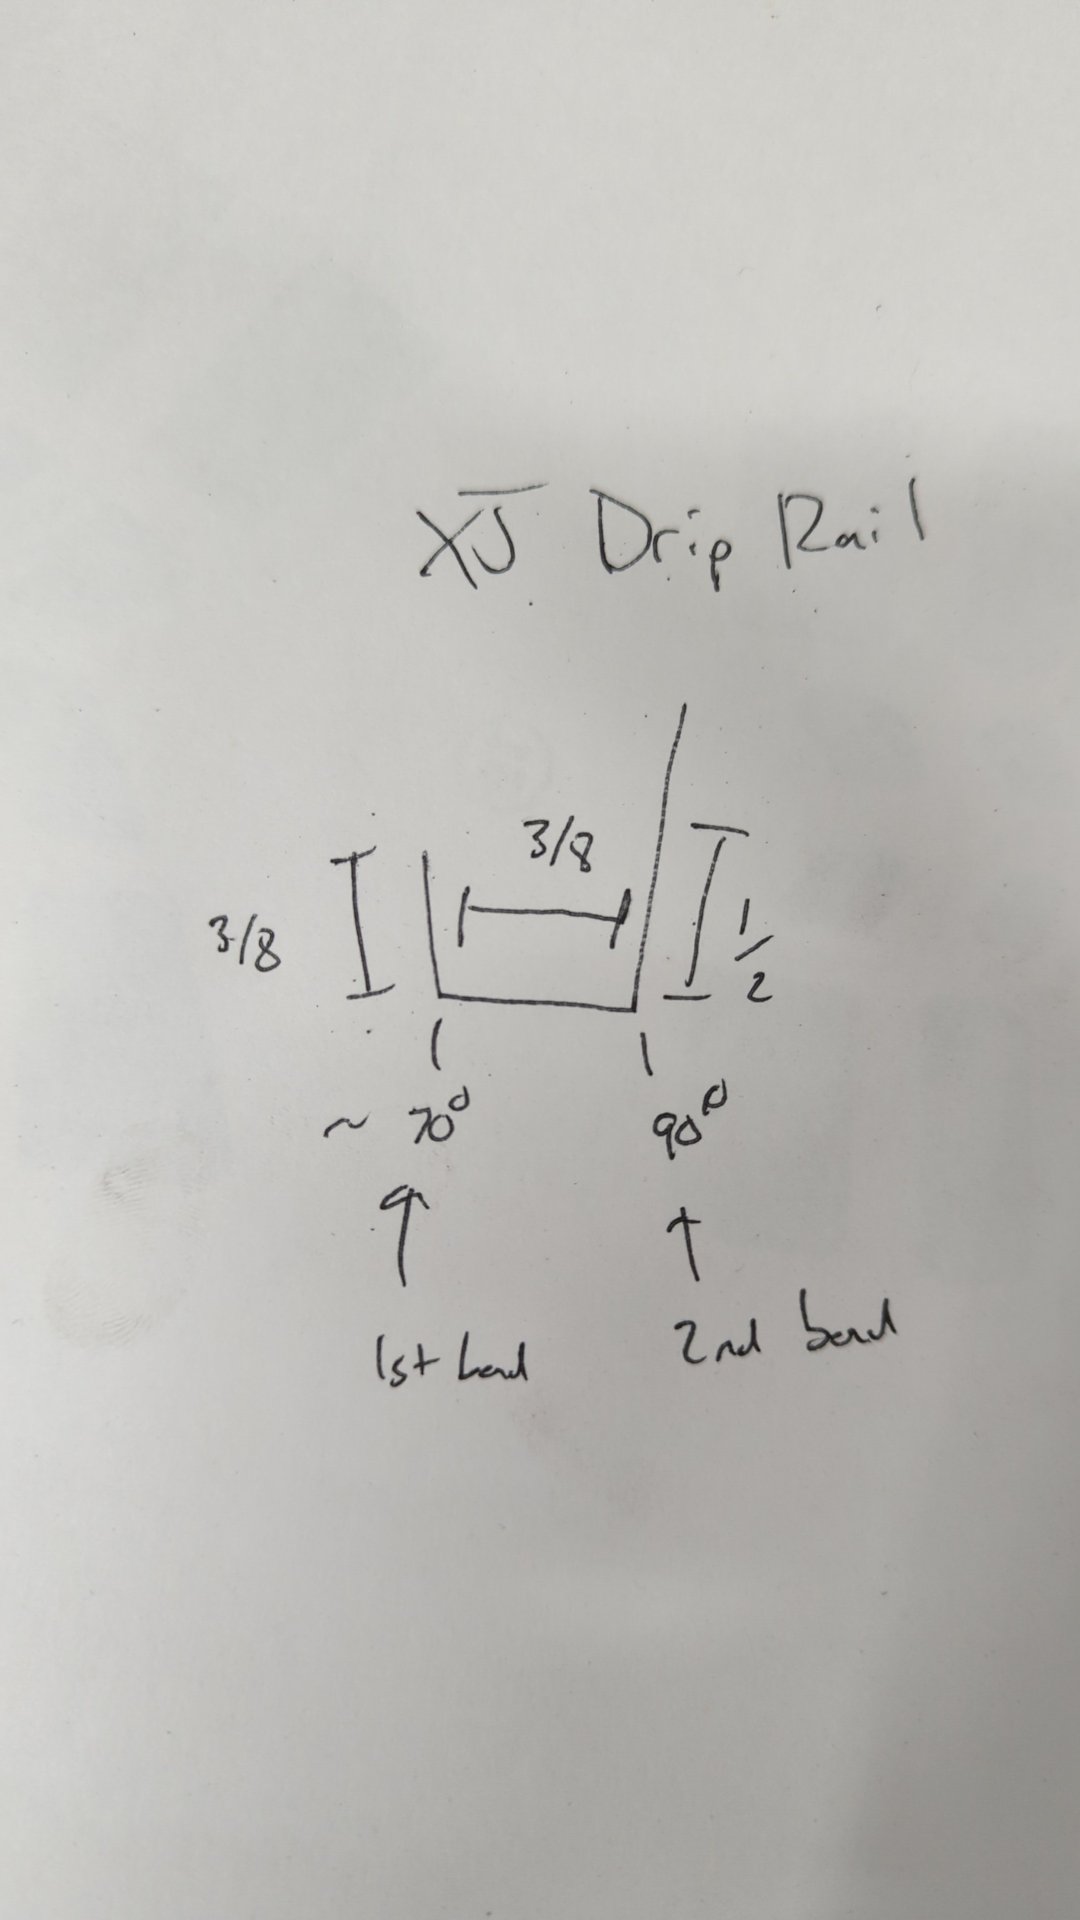 XJ Drip Rail
3/8
3/8
1/2
~ 70°
90°
1st bend
2nd bend